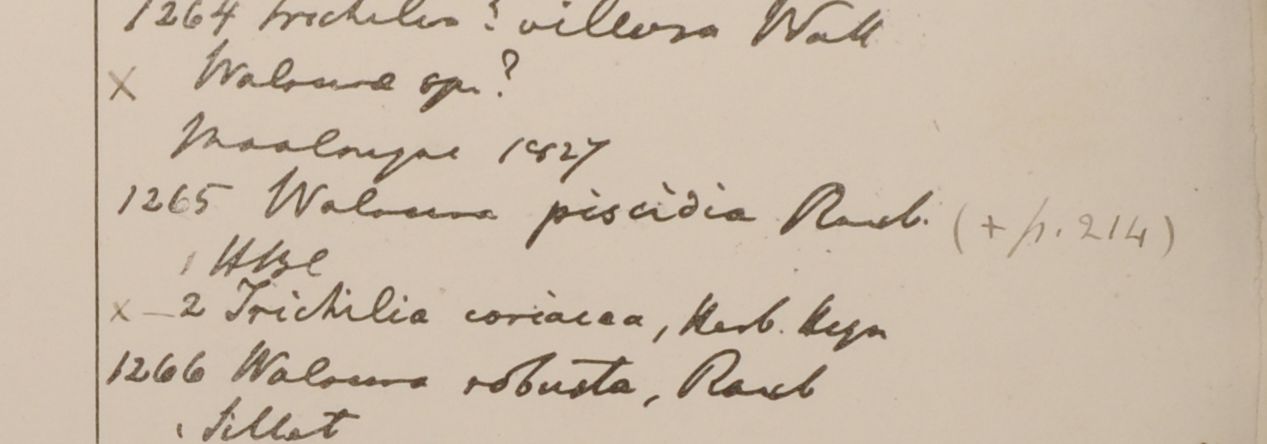 1264 Trichilia ? villosa Wall
x Walsura sp. ?
Moalmyne 1827
1265 Walsura piscidia Roxb. (+ p. 214)
1 HBC
x — 2 Trichilia coriacea, Herb. Heyn
1266 Walsura robusta, Roxb
1 Sillet